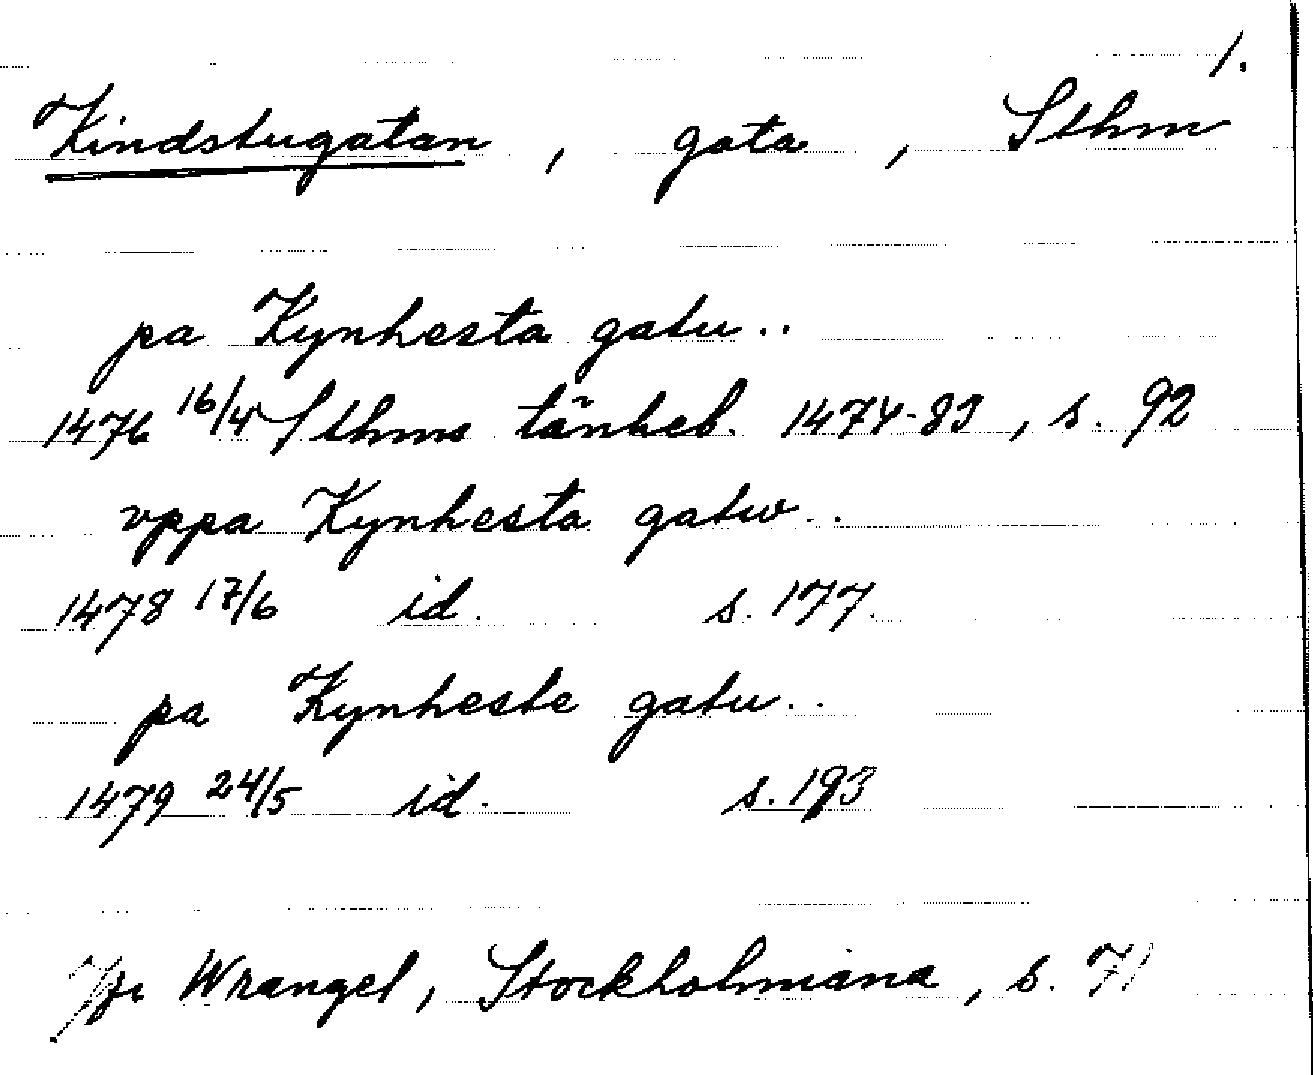 1.
Kindstugatan, gata, Sthm
pa Kynhesta gatu..
1476 16/4 Sthms tänkeb. 1474-83, s. 92
vppa Kynhesta gatw..
1478 17/6 id. s. 177.
pa Kynheste gatu..
1479 24/5 id. s. 193
Jfr Wrangel, Stockholmiana, s. 71